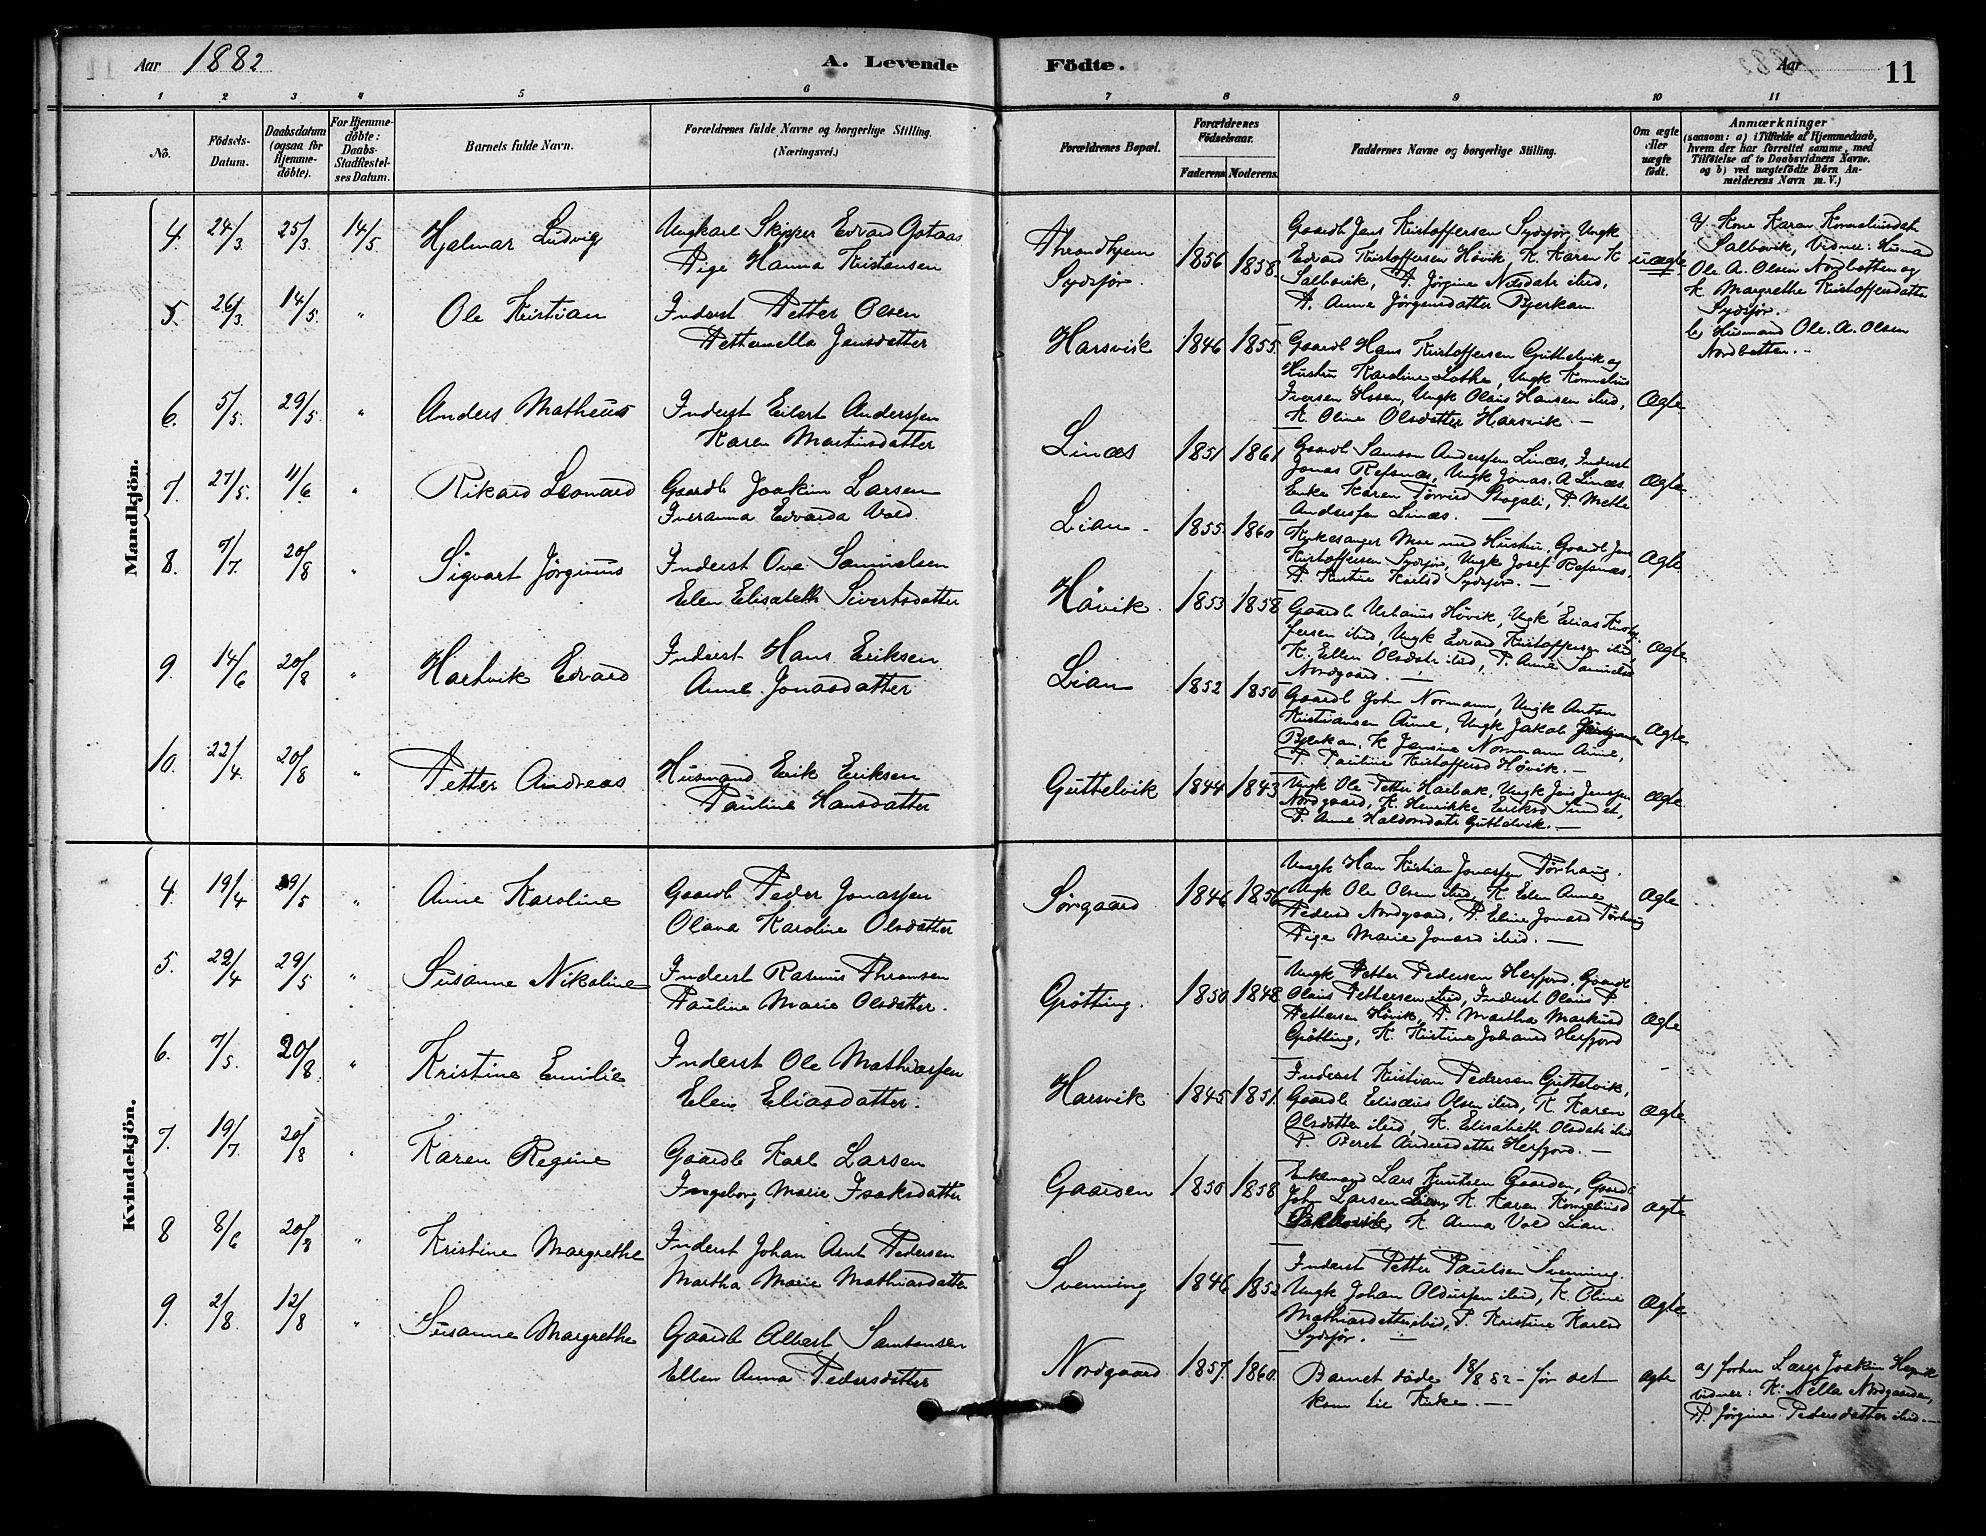 Aar 1882 A. Levende
Födte. Aar 11
1 2 3 4 5 6
7 8 9 10 11
No.
Födsels-
Datum.
Daabsdatum
(ogsaa for
Hjemme-
döbte).
For Hjemme-
döbte:
Daabs-
Stadfestel-
ses Datum.
Barnets fulde Navn.
Forældrenes fulde Navne og borgerlige Stilling.
(Næringsvei.)
Forældrenes Bopæl.
Forældrenes
Födselsaar.
Faderens Moderens
Faddernes Navne og borgerlige Stilling.
Om ægte
eller
uægte
födt.
Anmærkninger
(saasom: a) i Tilfælde af Hjemmedaab,
hvem der har forrettet samme, med
Tilföielse af to Daabsvidners Navne.
og b) ved uægtefödte Börn An-
melderens Navn m. V.)
Mandkjön.
4. 24/3 25/3 14/5 Hjalmar Ludvig
Ungkarl Skipper Edvard Gataas
Pige Hanna Kristensen
Throndhjem
Sydsjør.
1856 1858.
Gaardb Jens Kristoffersen Sydsjør, Ungk
Edvard Kristoffersen Høvik, K. Karen K
Salbovik, P. Jørgine Nilsdatr ibid,
P. Anne Jørgensdatter Bjerkan.
uægte
a) Kone Karen Korneliusdatr
Salbovik, Vidner: Husmd
Ole A. Olsen Nordbotten og
K Margrethe Kristoffersdatter
Sydsjør.
b) Husmand Ole. A. Olsen
Nordbotten.-
5. 26/3. 14/5. " Ole Kristian
Inderst Petter Olsen
Petternella Jensdatter
Harsvik 1846 1855.
Gaardb Hans Kristoffersen Guttelvik og
Hustru Karoline Lothe, Ungk Kornelius
Iversen Hosen, Ungk Olaus Hansen ibid,
K. Oline Olsdatter Harsvik. -
Ægte
6. 5/5. 29/5. " Anders Matheus
Inderst Eilert Anderssen
Karen Martinsdatter
Linæs 1851 1861
Gaardb Samson Anderssen Linæs, Inderst
Jonas Refsnæs, Ungk Jonas. A Linæs
Enke Karen Stogali, P. Methe
Anderssen Linæs. -
Ægte
7. 27/5. 11/6 " Rikard Leonard
Gaardb Joakim Larsen
Iveranna Edvarda Vold.
Lian - 1855. 1860
Kirkesanger Moe med Hustru. Gaardb Jens
Kristoffersen Sydsjør, Ungk Josef Refsnæs,
P. Kristine Karlsd Sydsjør. -
Ægte
8. 7/7. 20/8 " Sigvart Jørginus
Inderst Ove Samuelsen
Elen Elisabeth Sivertsdatter
Høvik. 1853 1858
Gaardb Urbanus Høvik, Ungk Elias Kristof-
fersen ibid, Ungk Edvard Kristoffersen ibid,
K. Ellen Olsdatr ibid, P. Anne Samuelsd
Nordgaard. -
Ægte
9. 14/6 20/8 " Hartvik Edvard
Inderst Hans Eriksen
Anne Jonasdatter
Lian 1852 1850
Gaardb John Normann, Ungk Anton
Kristiansen Aune, Ungk Jakob Jørgensen
Bjerkan, K Jensine Normann Aune,
P Pauline Kristoffersd Høvik. -
Ægte
10. 22/4. 20/8 " Petter Andreas
Husmand Erik Eriksen
Pauline Hansdatter
Guttelvik 1844 1843
Ungk Ole Petter Harbak, Ungk Jens Jenssen
Nordgaard, K. Henrikke Eriksd Sundet,
P. Anne Haldorsdatr Guttelvik. -
Ægte
Kvindekjön.
4. 19/4 29/5 " Anne Karoline
Gaardb Peder Jonassen
Olava Karoline Olsdatter
Sørgaard 1846 1856
Ungk Hans Kristian Jonassen Tørhaug.
Ungk Ole Olsen ibid, K. Elen Anne
Pedersd Nordgaard, P. Eline Jonasd Tørhaug
Pige Marie Jonasd ibid. -
Ægte
5. 22/4 29/5 " Susanne Nikoline
Inderst Rasmus Thronsen
Pauline Marie Olsdatter.
Grøtting. 1850 1848
Ungk Petter Pedersen Herfjord, Gaardb
Olaus Pettersen ibid, Inderst Olaus P.
Pettersen Høvik, P. Martha Markusd
Grøtting, K. Kristine Johansd Herfjord
Ægte
6. 7/5. 20/8. " Kristine Emilie
Inderst Ole Mathiassen
Elen Eliasdatter.
Harsvik 1845 1851.
Inderst Kristian Pedersen Guttelvik,
Gaardb Elisæus Olsen ibid, K. Karen
Olsdatter ibid, K. Elisabeth Olsdatr ibid
P. Beret Andersdatter Herfjord. -
Ægte
7. 19/7. 20/8 " Karen Regine
Gaardb Karl Larsen
Ingeborg Marie Isaksdatter
Gaarden 1850 1858
Enkemand Lars Knutsen Gaarden, Gaardb
John Larsen Lian, K. Karen Korneliusd
Salbovik, K. Anna Vold Lian.
ægte
8 8/6 20/8 " Kristine Margrethe
Inderst Johan Arnt Pedersen
Martha Marie Mathiasdatter
Svenning 1846 1852
Inderst Petter Paulsen Svenning.
Ungk Johan Oldussen ibid, K. Oline
Mathiasdatter ibid, P. Kristine Karlsd
Sydsjør. -
Ægte
9. 2/8. 12/8 " Susanne Margrethe
Gaardb Albert Samsonsen
Ellen Anna Pedersdatter
Nordgaard 1857. 1860.
Barnet døde 18/8 82 - før det
kom til Kirke. -
ægte
a) forhen Lærer Joakim
vidner: K. Nella Nordgaarden,
P. Jørgine Pedersdatter ibid. -